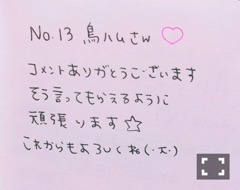 No.13 鳥ハムさん♡
コメントありがとうございます
そう言ってもらえるように
頑張ります☆
これからもよろしくね(・x・)